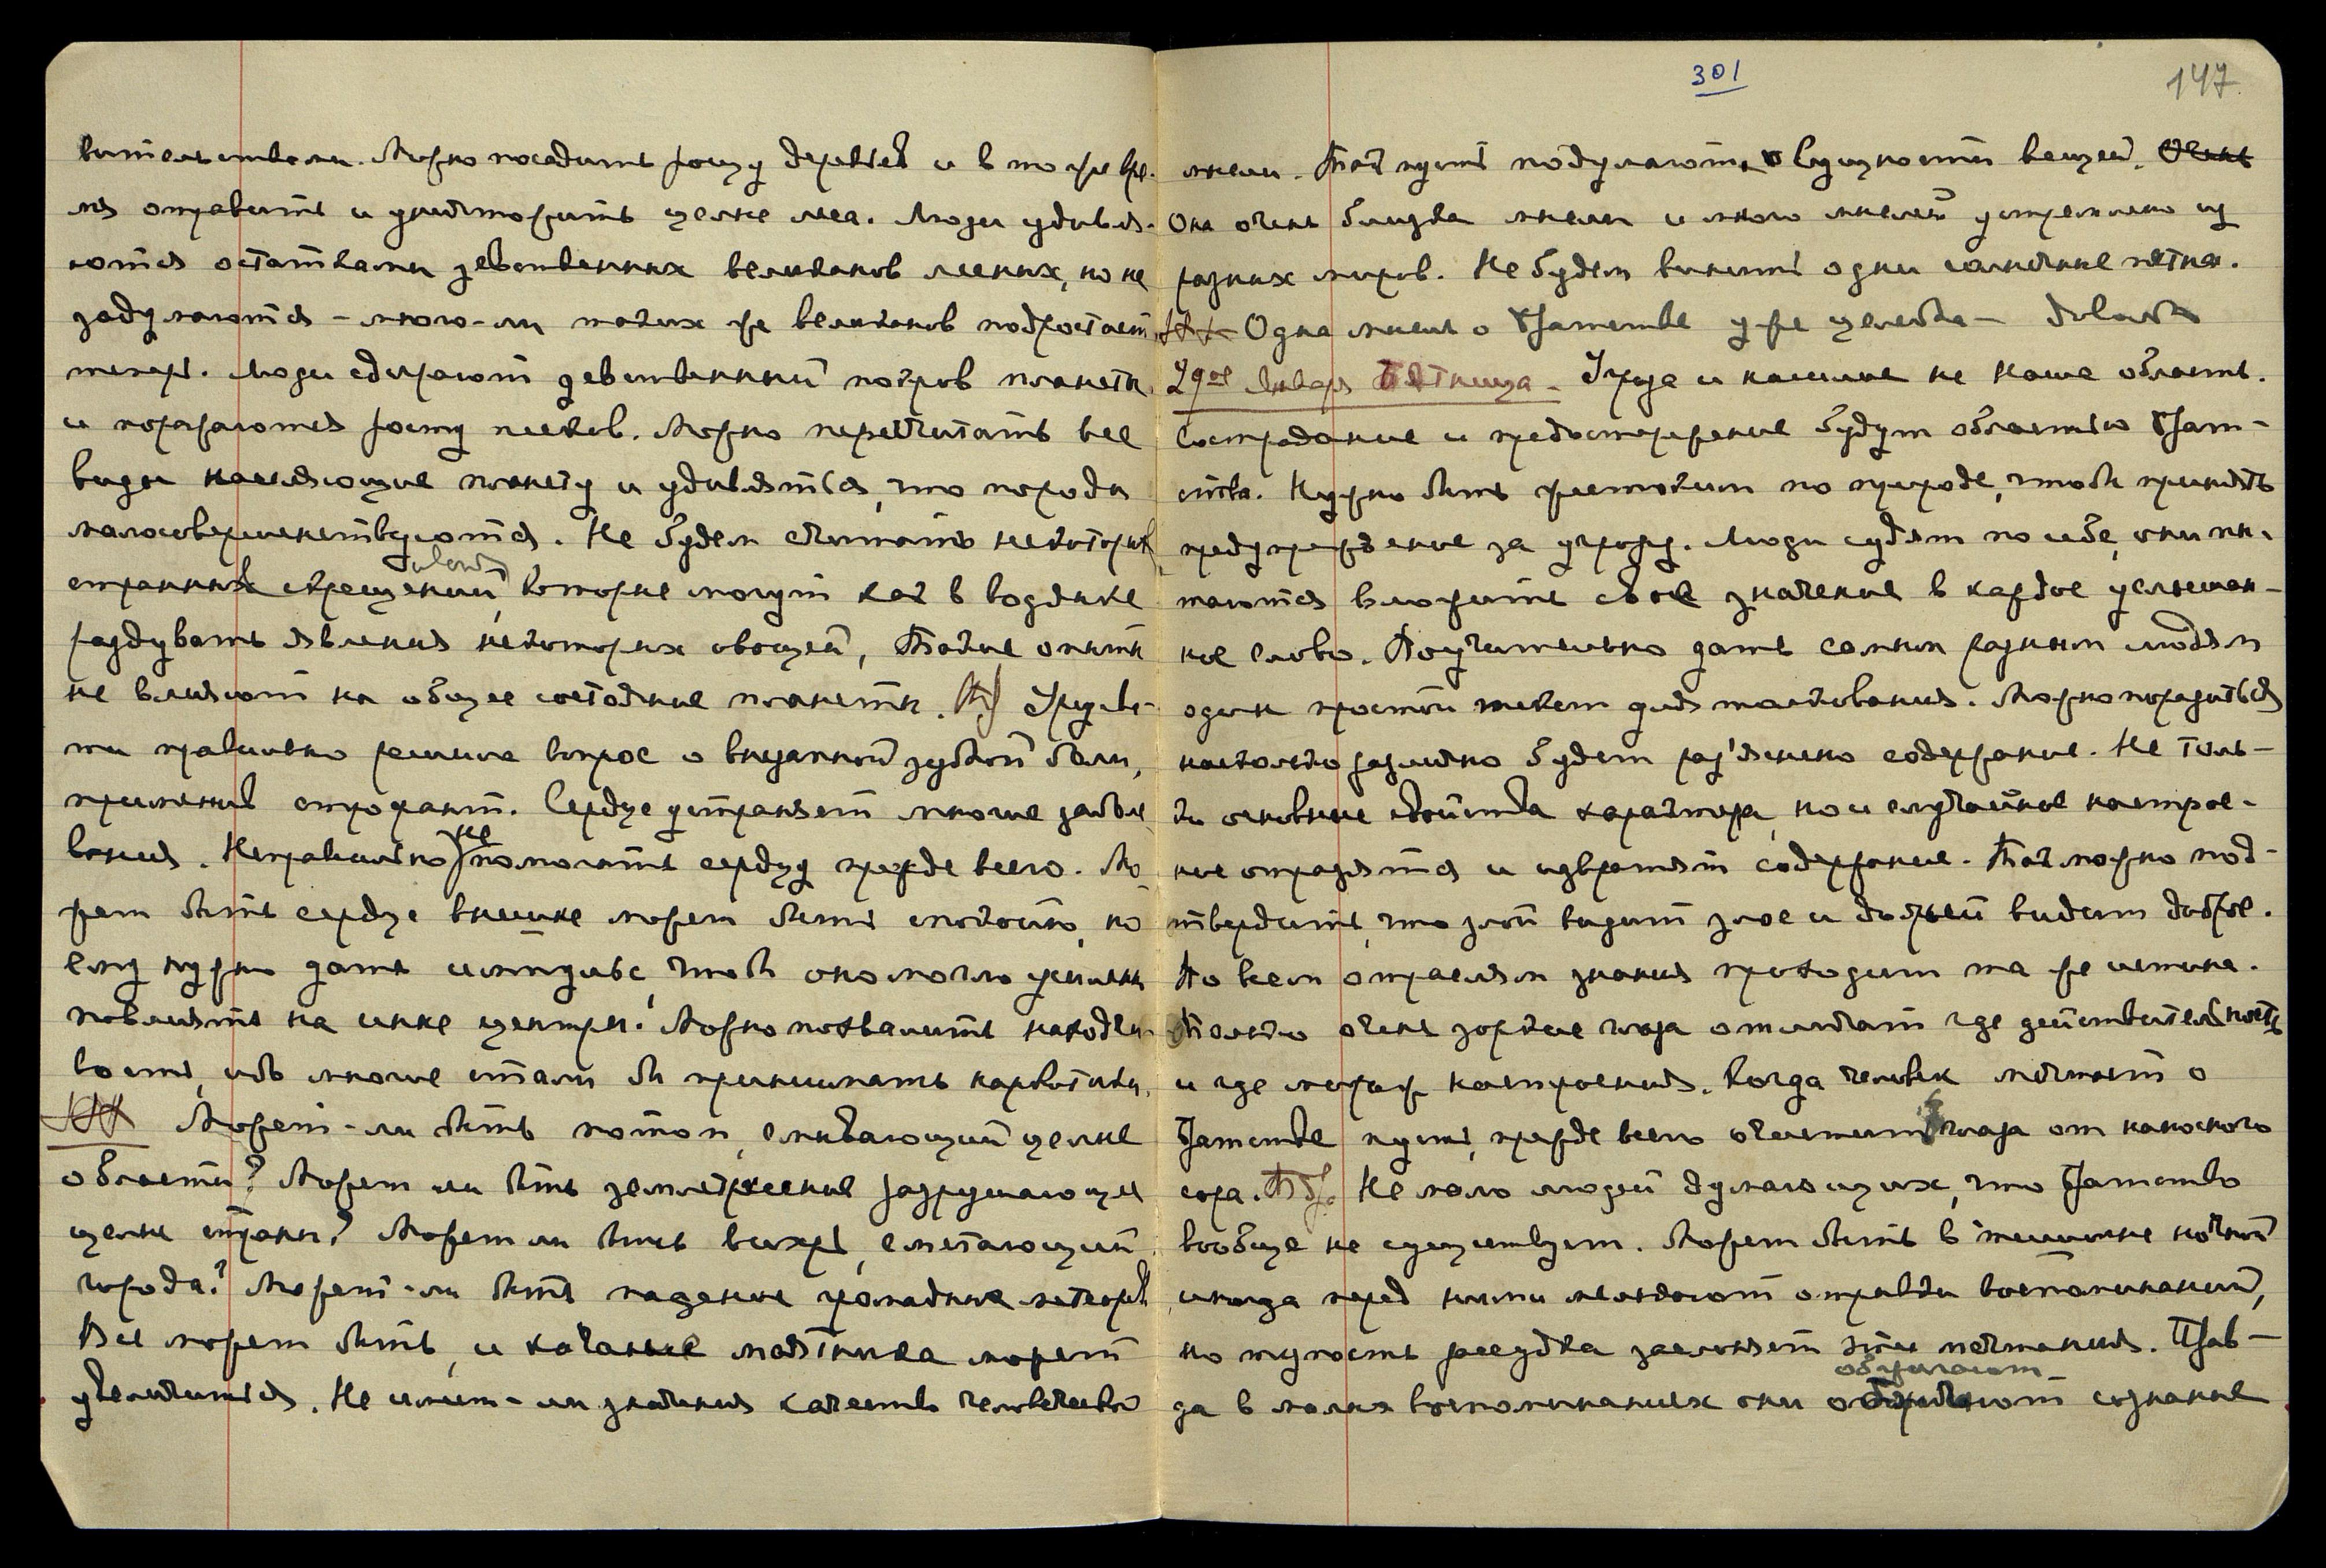 вительствами. Можно посадить рощу деревьев и в то же вре-
мя отравить и уничтожить целые леса. Люди удивля-
ются остатками девственных великанов лесных, но не
задумаются – много-ли таких же великанов подростает
теперь. Люди сдирают девственный покров планеты
и поражаются росту песков. Можно перечитать все
виды населяющие планету и удивляться, что породы
малосовершенствуются. Не будем считать некоторых
странных скрещений, которые могут как в водянке
раздувать явления некоторых овощей, Такие опыты
не влияют на общее состояние планеты.
ти правильно решила вопрос о внезапной зубной боли,
применив строфант. Сердце устраняет многие заболе
вания. Неправильно не помогать сердцу прежде всего. Мо
жет быть сердце внешне может быть спокойно, но
ему нужно дать импульс, чтоб оно могло усиленно
повлиять на иные центры. Можно похвалить находчи-
вость, ибо многие стали бы принимать наркотики.
Может-ли быть потоп, смывающий целые
области? Может ли быть землетрясение разрушающее
целые страны? Может ли быть вихрь, сметающий
города? Может-ли быть падение громадных метеоров
Все может быть, и качание маятника может
увеличиться. Не имеет-ли значения качество человеческой
301
147
мысли. Так пусть подумают о сущности вещей. Очень
Она очень близка мысли и много мыслей устремлено из
разных миров. Не будем винить одни солнечные пятна.
Одна мысль о Братстве уже целебна –
29ое Январь Пятница – Угроза и насилие не Наша область.
Сострадание и предостережение будут областью Брат-
ства. Нужно быть жестоким по природе, чтоб принять
предупреждение за угрозу. Люди судят по себе, они пы-
таются вложить свое значение в каждое услышан-
ное слово. Поучительно дать самым разным людям
один простой текст для толкования. Можно поразиться
насколько различно будет раз'яснено содержание. Не толь-
ко основные свойства характера, но и случайное настрое-
ние отразятся и извратят содержание. Так можно под-
твердить, что злой видит злое и добрый видит доброе.
По всем отраслям знания проходит та же истина.
Только очень зоркие глаза отличат где действительность
и где мираж настроения. Когда человек мечтает о
Братстве пусть, прежде всего очистит глаза от наносного
сора. Не мало людей думающих, что Братство
вообще не существует. Может быть в тишине ночной
иногда перед ними мелькают отрывки воспоминаний,
но тупость рассудка заслоняет эти мечтания. Прав-
да в малых воспоминаниях они
обретают
сознание